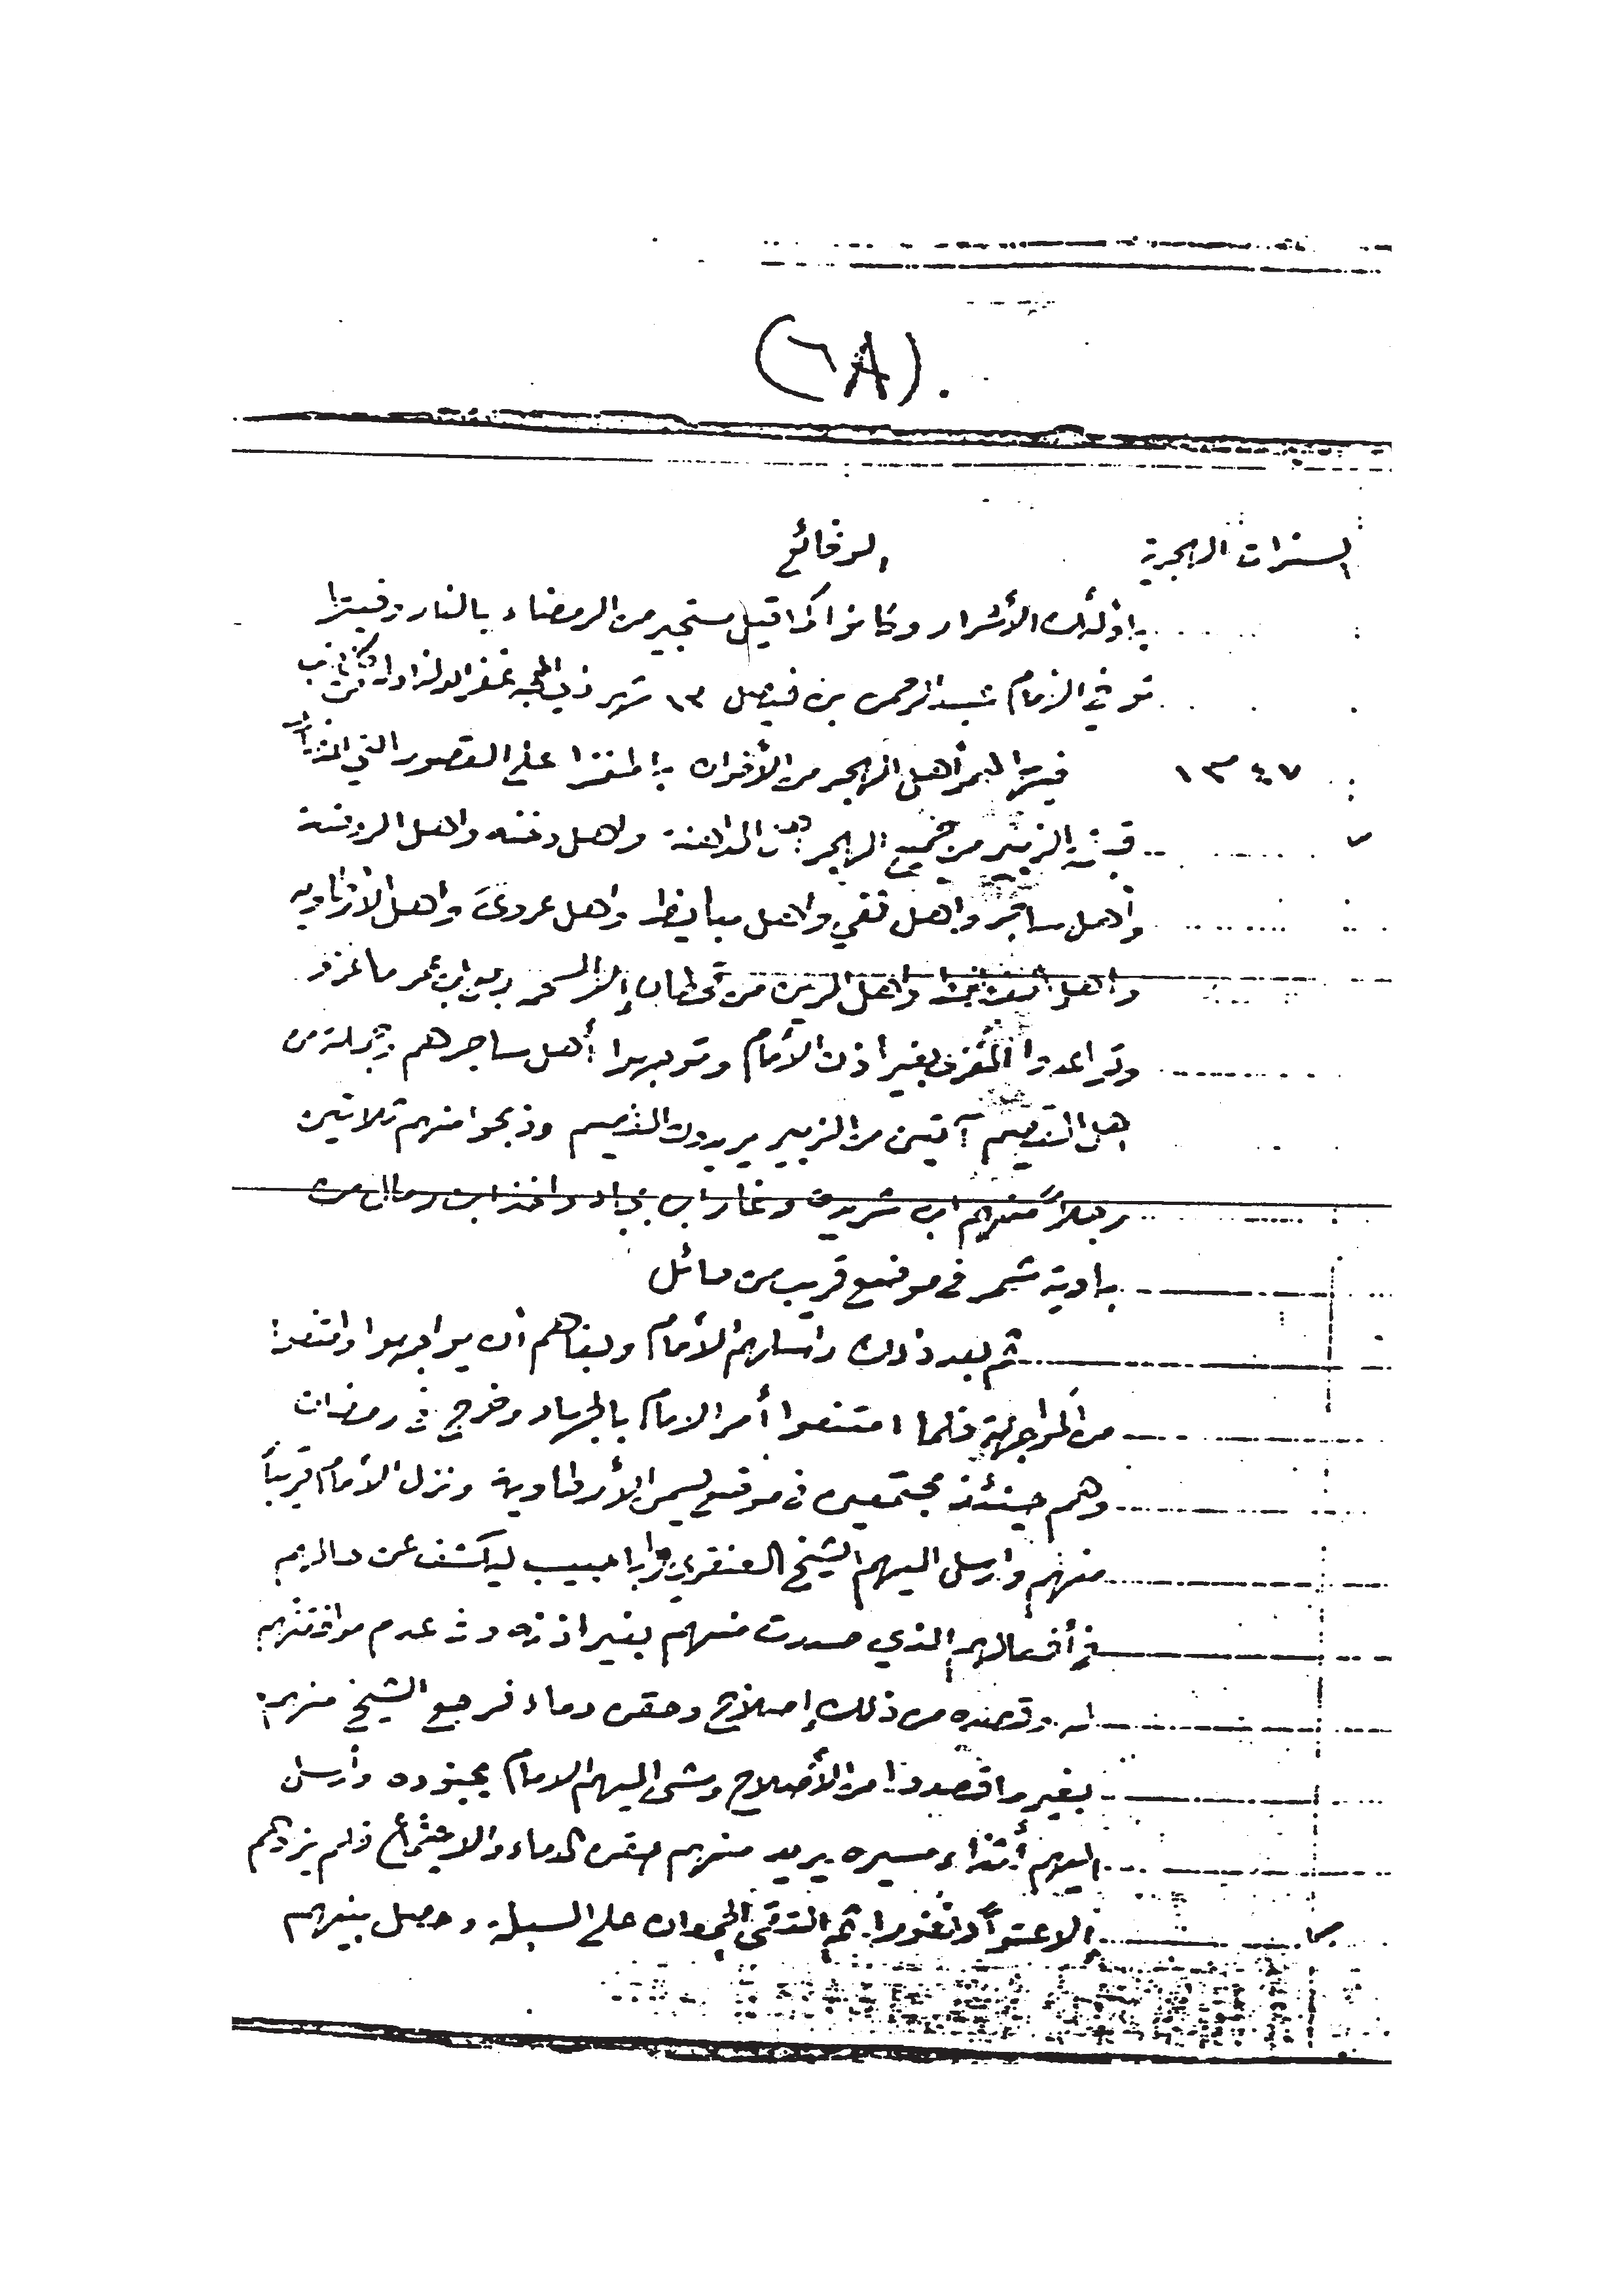 (٦٨)
السنوات الهجرية الوقائع
بأولئك الأشرار وكانوا كما قيل مستجير من الرمضاء بالنار وفيها
توفي الإمام عبد الرحمن بن فيصل ١٣ شهر ذي الحجة غفر الله لنا وله
١٣٤٧ فيها أهل الهجر من الأخوان على القصور التي
قبة الزبير من جميع الهجر الداهنة واهل دخنه واهل الروضة
وأهل ساجر وأهل نفي واهل مبايض واهل عروى واهل الارطاويه
واهل واهل الرين من قحطان إلا ابن عمر ما غزو
وتواعدوا المغزى بغير اذن الأمام وتوجهوا أهل ساجر هم وجملة من
اهل القصيم آتين من الزبير يريدون القصيم وذبحوا منهم ثلاثين
رجلاً منهم ابن شريدة وغار ابن بجاد واخذ ابن رمال من
بادية شمر في موضع قريب من حائل
ثم بعد ذلك راسلهم الأمام وبغاهم أن يواجهوا وامتنعوا
من المواجهة فلما امتنعوا أمر الامام بالجهاد وخرج في رمضان
وهم حينئذ مجتمعين في موضع يسمى الأرطاوية ونزل الأمام قريباً
منهم وارسل اليهم الشيخ العنقري وابا حبيب ليكشف عن حالهم
في أفعالهم الذي صدرت منهم بغير اذنه وفي عدم موافقتهم
له وقصده من ذلك إصلاح وحقن دماء فرجع الشيخ منهم
بغير ما قصدوا من الأصلاح ومشى اليهم الامام بجنوده وأرسل
اليهم أثناء مسيره يريد منهم حقن الدماء والاجتماع فلم يزدهم
إلا عتواً ونفورا. ثم التقى الجمعان على السبلة وحصل بينهم